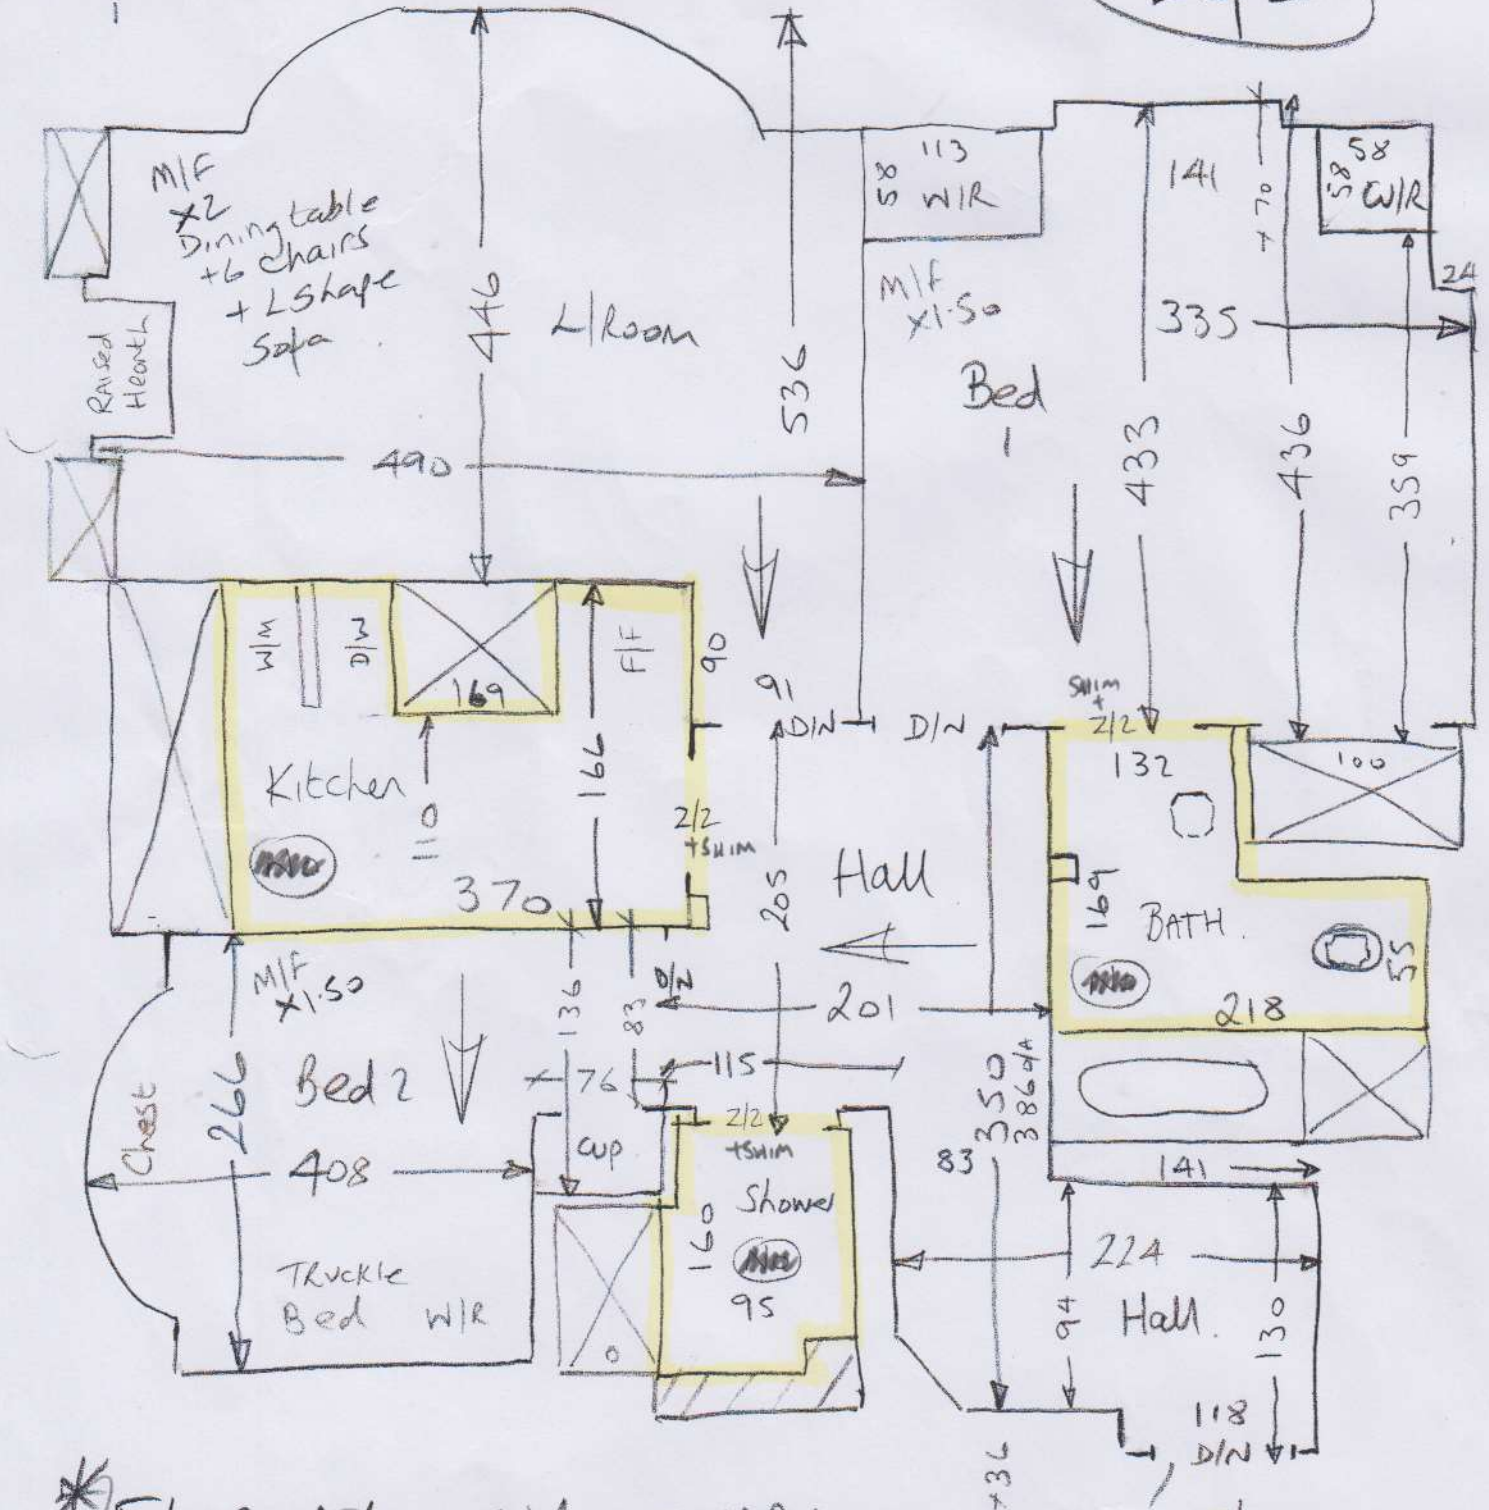 M/F
x2
Dining table
+6 Chairs
+ L Shape
Sofa
Raised
Hearth
446
L/Room
536
490
113
58
W/R
M/F
x1.50
Bed
1
141
+70
58
58
W/R
24
335
433
436
359
W/M
D/W
169
F/F
90
91
D/N
D/N
SHIM
+
2/2
132
100
Kitchen
110
166
370
2/2
+SHIM
205
Hall
169
BATH.
55
218
201
M/F
x1.50
136
83
Chest
266
Bed 2
408
76
115
Cup
2/2
+SHIM
Shower
160
95
Truckle
Bed
W/R
350
386 o/A
83
141
224
94
Hall.
130
118
D/N
+36